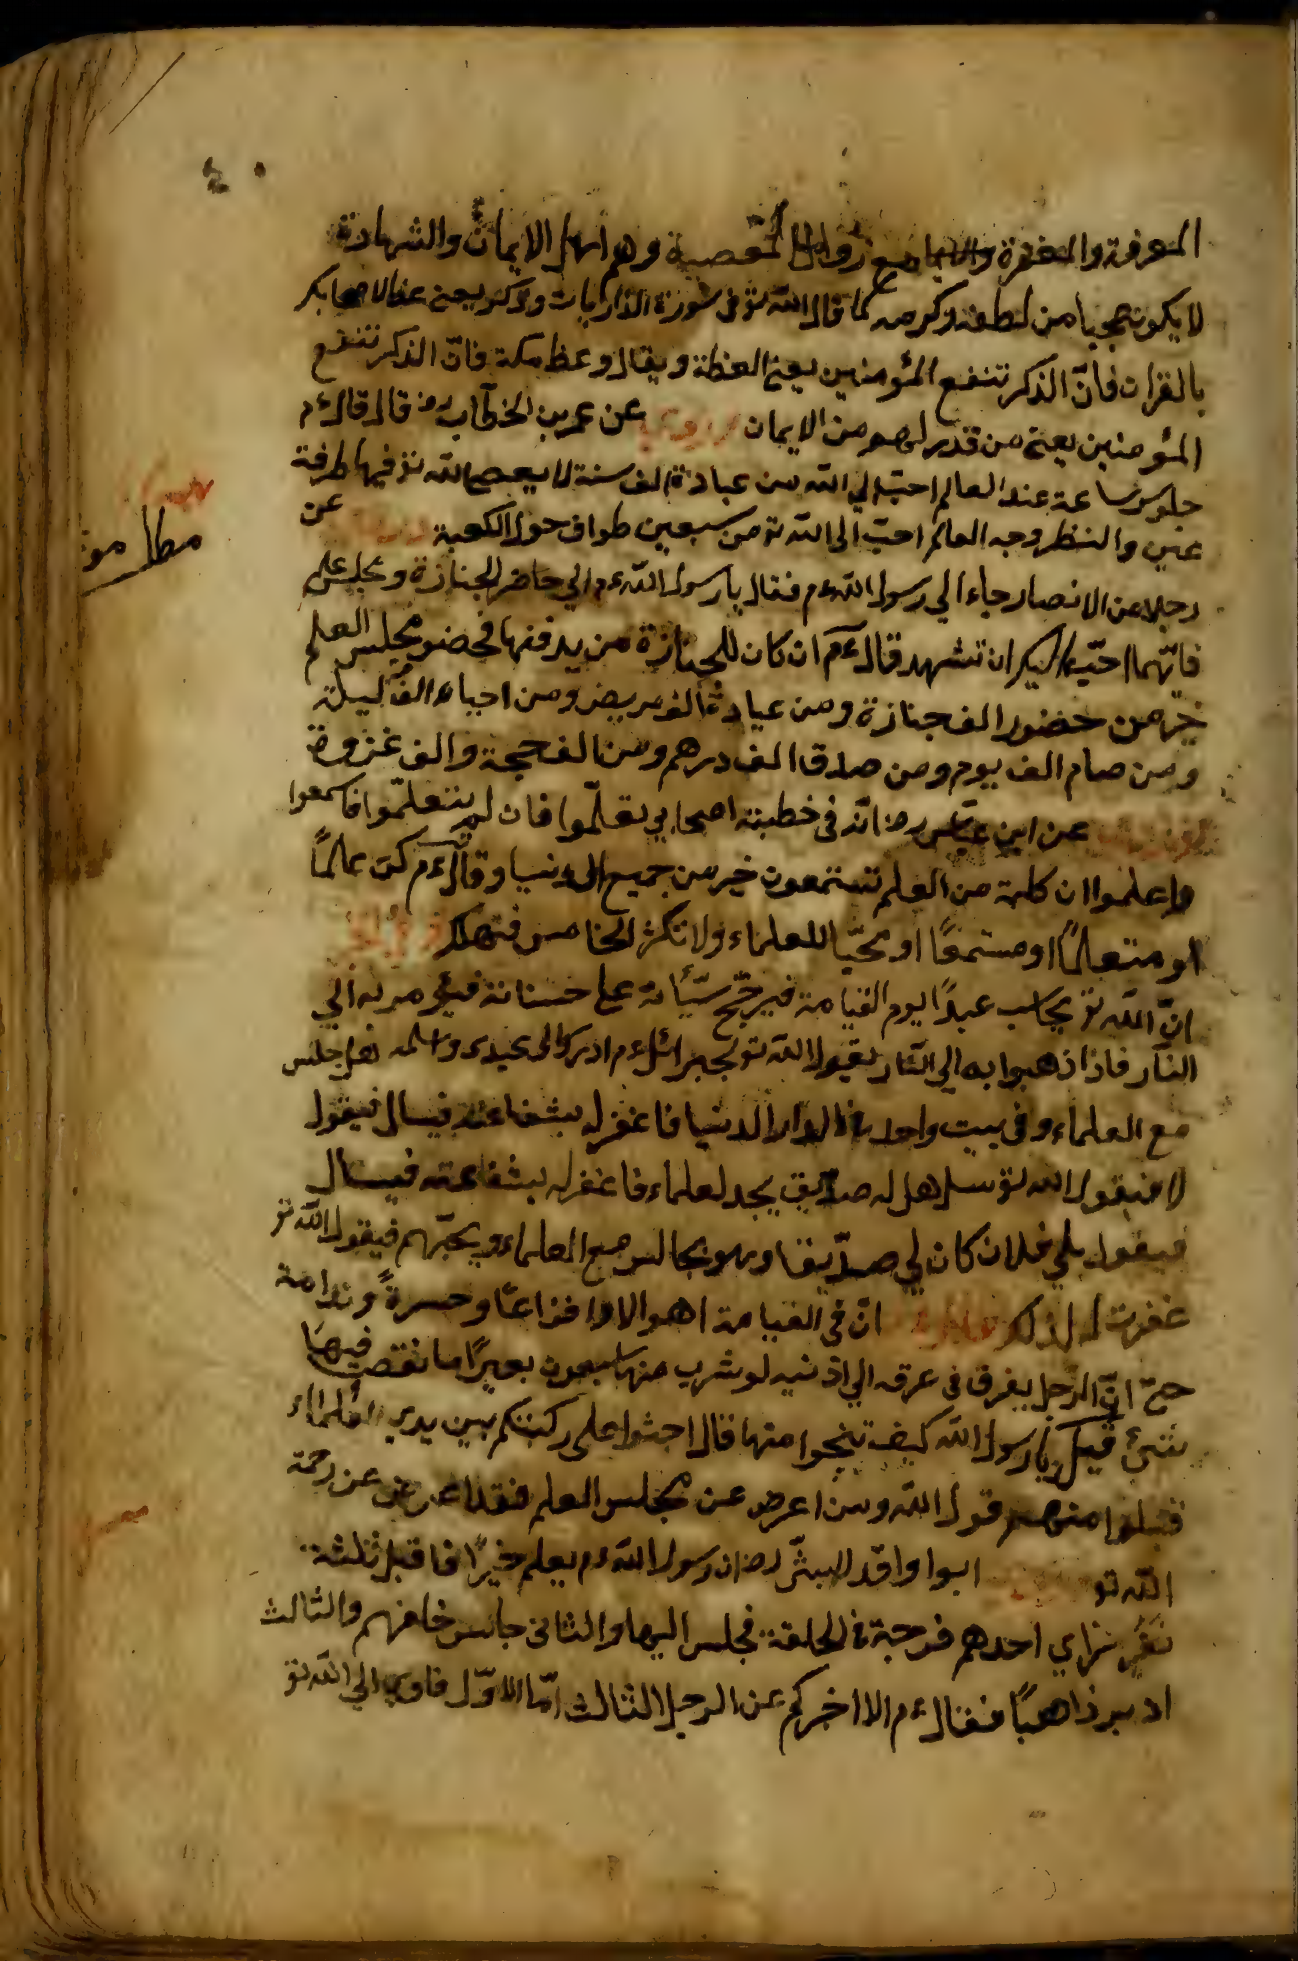 المعرفة والمغفرة وهم اهل الايمان والشهادة
لا يكون محجوبا من لطفه وكرمه كما قال الله تو فى سورة الذاريات وذكر يعنى عظ اصحابك
بالقران فانّ الذكر تنفع المؤمنين يعنى العظة ويقال وعظ مكة فانّ الذكر تنفع
المؤمنين يعنى من قدر لهم من الايمان عن عمر بن الخطاب رض قال قال ءم
جلوس ساعة عند العالم احبّ الي الله من عبادة الف سنة لا يعصى الله تو فيها طرفة
عين والنظر وجه العالم احبّ الى الله تو من سبعين طواف حول الكعبة عن
رجلا من الانصار جاء الي رسول الله ءم فقال يا رسول الله ءم الي حاضر الجنازة ومجلس علم
فايّهما احبّ اليك ان تشهد قال ءم ان كان للجنازة من يدفنها فحضور مجلس العلم
خير من حضور الف جنازة ومن عيادة الف مريض ومن احياء الف ليلة
ومن صام الف يوم ومن صدق الف درهم ومن الف حجة والف غزوة
عن ابن عبّاس رض انّه فى خطبته اصحابي تعلّموا فان لم يتعلّموا فاسمعوا
واعلموا ان كلمة من العلم تستمعون خير من جميع الدنيا وقال ءم كن عالماً
او متعلماً او مستمعًا او محبّا للعلماء ولا تكن الخامس فتهلك
انّ الله تو يحاسب عبدًا يوم القيامة فيرجّح سيّأته على حسناته فيؤمر به الي
النّار فاذا ذهبوا به الي النّار يقول الله تو لجبرائل ءم ادرك الى عبدى واسئله هل جلس
مع العلماء وفى بيت واحد فى الدار الدنيا فاغفر له بشفاعته فيسال فيقول
لا فيقول الله تو سل هل له صدّيق يحب لعلماء فاغفر له بشفاعته فيسال
فيقول بلي فلان كان لي صدّيقا وهو يجالس مع العلماء ويحبّهم فيقول الله تو
غفرت له لذلك انّ فى القيامة اهوالا وافزاعًا وحسرةً وندامة
حتّى انّ الرّجل يغرق فى عرقه الي اذنيه لو شرب منها سبعون بعيرًا ما نقص فيها
شئ قيل يا رسول الله كيف تنجوا منها قال اجثوا على ركبتكم بين يدي العلماء
قول الله ومن اعرض عن مجلس العلم فقد اعرض عن رحمة
الله تو ابوا واقد الليثى رض ان رسول الله ءم يعلم خيرًا فاقبل ثلثة
نفر فراي احدهم فرجة فى الحلقة فجلس اليها والثانى جالس خلفهم والثالث
ادبر ذاهبًا فقال ءم الا اخبركم عن الرجل الثالث امّا الاوّل فاوي الي الله تو